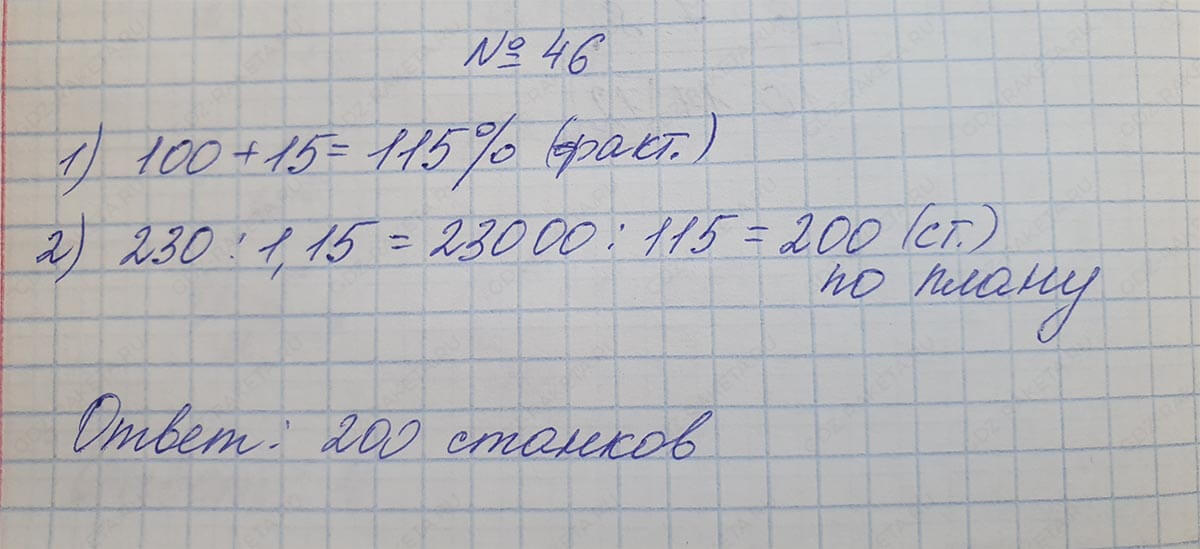 № 46
1) 100 + 15 = 115% (факт.)
2) 230 : 1,15 = 23000 : 115 = 200 (ст.)
по плану
Ответ: 200 станков